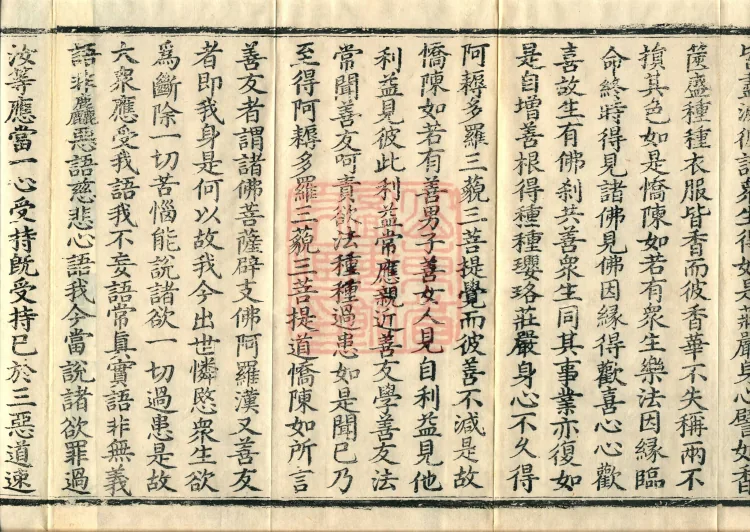 篋盛種種衣服皆香而彼香華不失稱兩不
損其色如是憍陳如若有衆生樂法因縁臨
命終時得見諸佛見佛因縁得歡喜心心歡
喜故生有佛刹共善衆生同其事業亦復如
是自增善根得種種瓔珞莊嚴身心不久得
阿耨多羅三藐三菩提覺而彼善不減是故
憍陳如若有善男子善女人見自利益見他
利益見彼此利益常應親近善友學善友法
常聞善友呵責欲法種種過患如是聞已乃
至得阿耨多羅三藐三菩提道憍陳如所言
善友者謂諸佛菩薩辟支佛阿羅漢又善友
者即我身是何以故我今出世憐愍衆生欲
爲斷除一切苦惱能說諸欲一切過患是故
大衆應受我語我不妄語常眞實語非無義
語非麤惡語慈悲心語我今當說諸欲罪過
汝等應當一心受持旣受持已於三惡道速